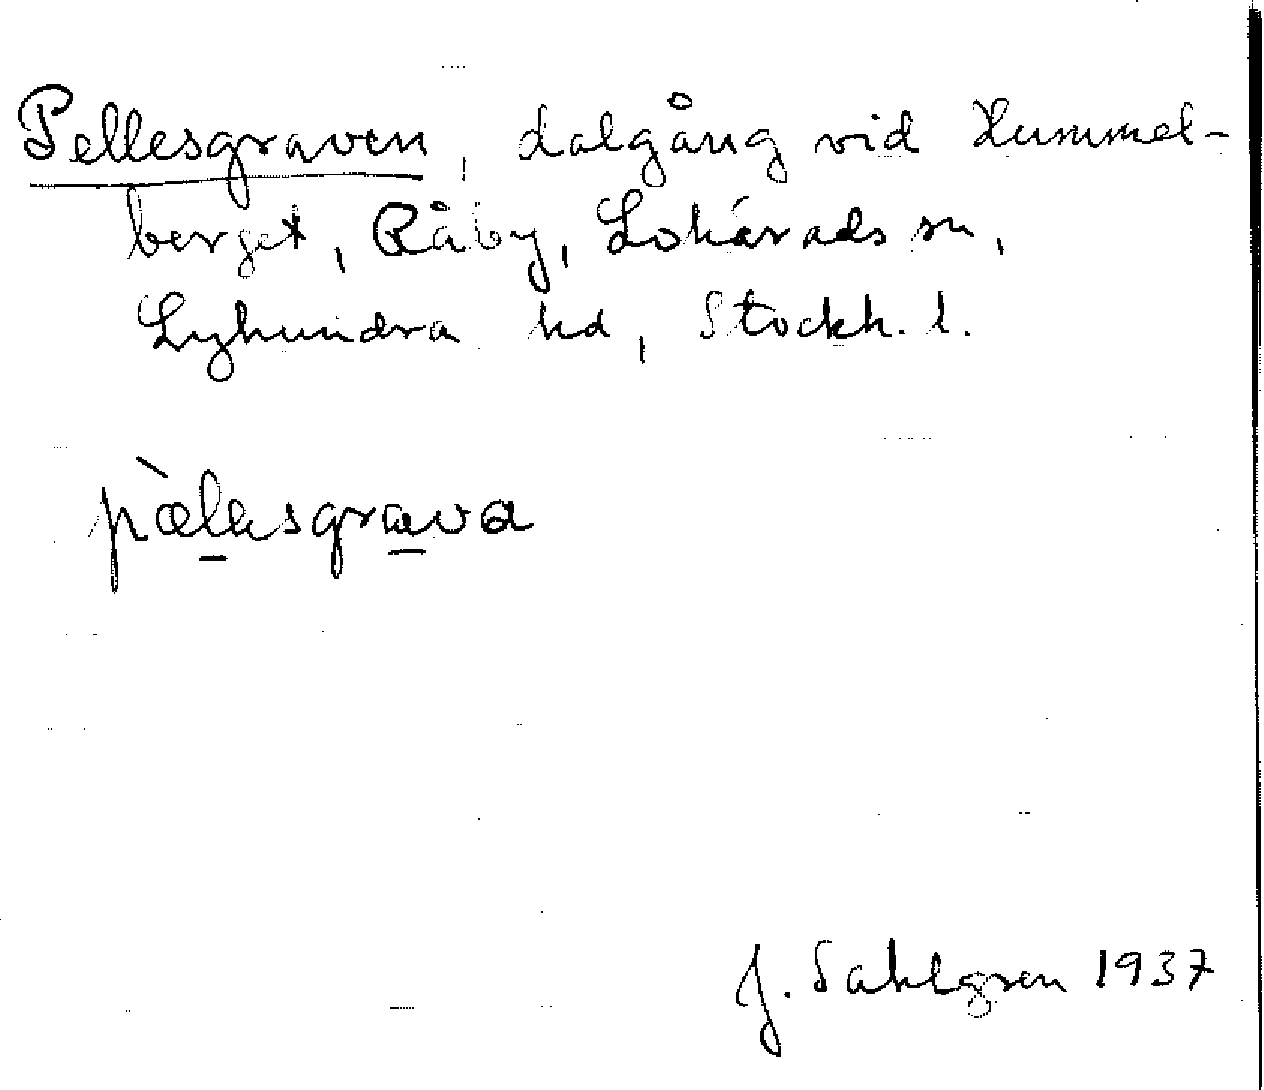 Pellesgraven, dalgång vid Hummel-
berget, Råby, Lohärads sn,
Lyhundra hd, Stockh. l.
pæ̀lesgrava
J. Sahlgren 1937